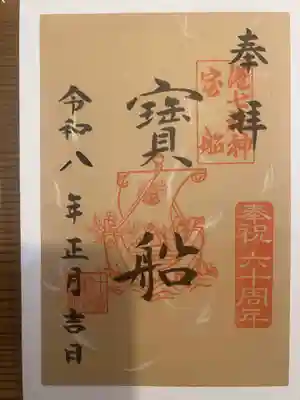 奉拝
宝船
奉祝六十周年
寶船
令和八年正月吉日